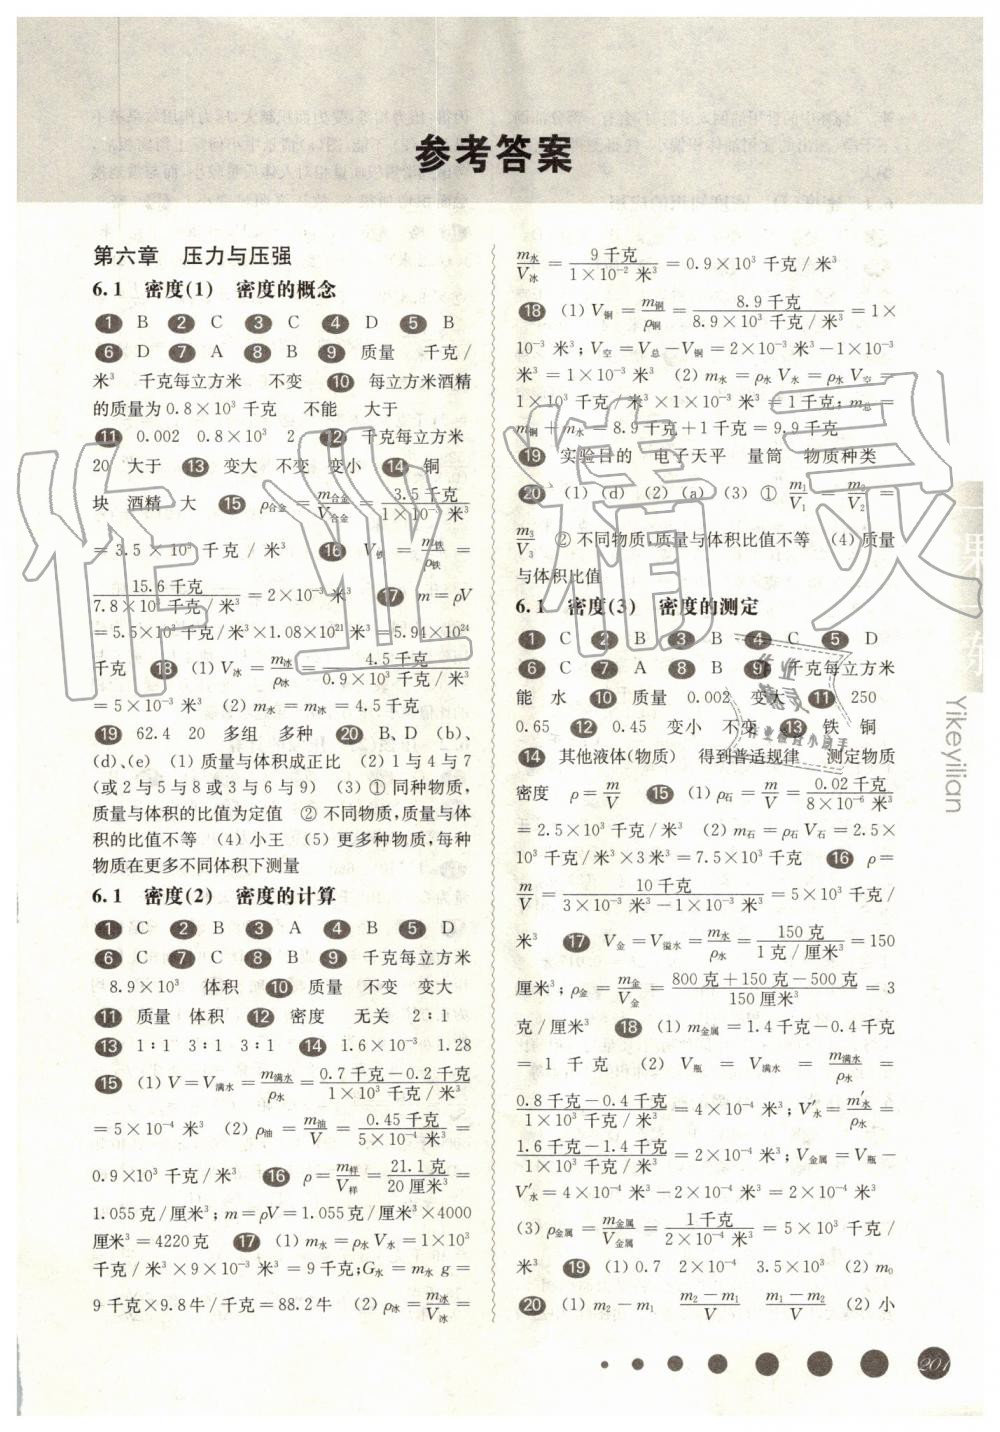 参考答案
第六章 压力与压强
6.1 密度(1) 密度的概念
1 B 2 C 3 C 4 D 5 B
6 D 7 A 8 B 9 质量 千克/
米³ 千克每立方米 不变 10 每立方米酒精
的质量为0.8×10³千克 不能 大于
11 0.002 0.8×10³ 2 12 千克每立方米
20 大于 13 变大 不变 变小 14 铜
块 酒精 大 15 ρ合金=m合金/V合金=3.5千克/1×10⁻³米³
=3.5×10³千克/米³ 16 V铁=m铁/ρ铁=
15.6千克/7.8×10³千克/米³=2×10⁻³米³ 17 m=ρV
=5.5×10³千克/米³×1.08×10²¹米³=5.94×10²⁴
千克 18 (1) V冰=m冰/ρ冰=4.5千克/0.9×10³千克/米³
=5×10⁻³米³ (2) m水=m冰=4.5千克
19 62.4 20 多组 多种 20 B、D (b)、
(d)、(e) (1) 质量与体积成正比 (2) 1与4与7
(或2与5与8或3与6与9) (3) ① 同种物质,
质量与体积的比值为定值 ② 不同物质,质量与体
积的比值不等 (4) 小王 (5) 更多种物质,每种
物质在更多不同体积下测量
6.1 密度(2) 密度的计算
1 C 2 B 3 A 4 B 5 D
6 C 7 C 8 B 9 千克每立方米
8.9×10³ 体积 10 质量 不变 变大
11 质量 体积 12 密度 无关 2∶1
13 1∶1 3∶1 3∶1 14 1.6×10⁻³ 1.28
15 (1) V=V满水=m满水/ρ水=0.7千克-0.2千克/1×10³千克/米³
=5×10⁻⁴米³ (2) ρ油=m油/V=0.45千克/5×10⁻⁴米³=
0.9×10³千克/米³ 16 ρ=m样/V样=21.1克/20厘米³=
1.055克/厘米³;m=ρV=1.055克/厘米³×4000
厘米³=4220克 17 (1) m水=ρ水V水=1×10³
千克/米³×9×10⁻³米³=9千克;G水=m水g=
9千克×9.8牛/千克=88.2牛 (2) ρ冰=m冰/V冰=
m水/V冰=9千克/1×10⁻²米³=0.9×10³千克/米³
18 (1) V铜=m铜/ρ铜=8.9千克/8.9×10³千克/米³=1×
10⁻³米³;V空=V总-V铜=2×10⁻³米³-1×10⁻³
米³=1×10⁻³米³ (2) m水=ρ水V水=ρ水V空=
1×10³千克/米³×1×10⁻³米³=1千克;m总=
m铜+m水=8.9千克+1千克=9.9千克
19 实验目的 电子天平 量筒 物质种类
20 (1) (d) (2) (a) (3) ① m₁/V₁=m₂/V₂=
m₃/V₃ ② 不同物质,质量与体积比值不等 (4) 质量
与体积比值
6.1 密度(3) 密度的测定
1 C 2 B 3 B 4 C 5 D
6 C 7 A 8 B 9 千克每立方米
能 水 10 质量 0.002 变大 11 250
0.65 12 0.45 变小 不变 13 铁 铜
14 其他液体(物质) 得到普适规律 测定物质
密度 ρ=m/V 15 (1) ρ石=m/V=0.02千克/8×10⁻⁶米³
=2.5×10³千克/米³ (2) m石=ρ石V石=2.5×
10³千克/米³×3米³=7.5×10³千克 16 ρ=
m/V=10千克/3×10⁻³米³-1×10⁻³米³=5×10³千克/
米³ 17 V金=V溢水=m水/ρ水=150克/1克/厘米³=150
厘米³;ρ金=m金/V金=800克+150克-500克/150厘米³=3
克/厘米³ 18 (1) m金属=1.4千克-0.4千克
=1千克 (2) V瓶=V满水=m满水/ρ水=
0.8千克-0.4千克/1×10³千克/米³=4×10⁻⁴米³;V′水=m′水/ρ水=
1.6千克-1.4千克/1×10³千克/米³=2×10⁻⁴米³;V金属=V瓶-
V′水=4×10⁻⁴米³-2×10⁻⁴米³=2×10⁻⁴米³
(3) ρ金属=m金属/V金属=1千克/2×10⁻⁴米³=5×10³千克/
米³ 19 (1) 0.7 2×10⁻⁴ 3.5×10³ (2) m₀
20 (1) m₂-m₁ m₂-m₁/V m₂-m₁/V (2) 小
Yikeyilian
201
作业精灵